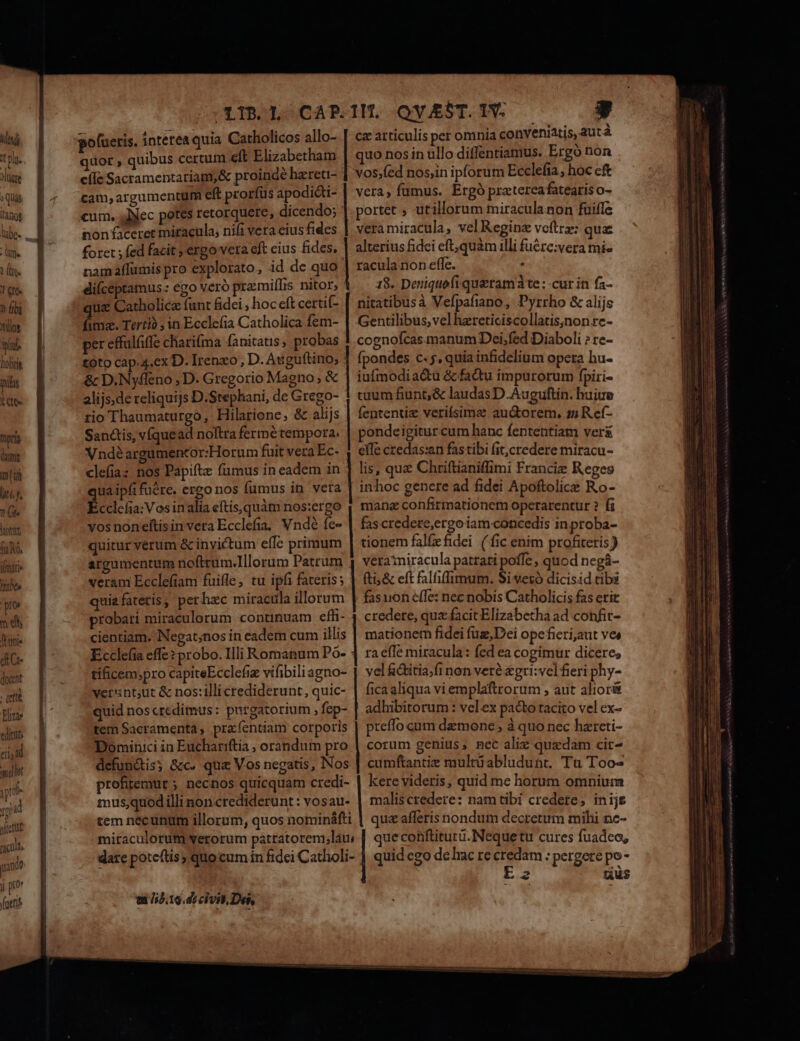 LIB. I. CAP. III. QVÆST. IV.
posueris. interea quia Catholicos allo-
quor, quibus certum est Elizabetham
esse Sacramentariam, & proindè hæreti-
cam, argumentum est prorsus apodicti-
cum. Nec potes retorquere, dicendo;
non faceret miracula, nisi vera eius fides
foret; sed facit, ergo vera est eius fides.
nam assumis pro explorato, id de quo
disceptamus: ego verò præmissis nitor,
quæ Catholicæ sunt fidei, hoc est certis-
simæ. Tertiò, in Ecclesia Catholica sem-
per effulsisse charisma sanitatis, probas
toto cap. 4. ex D. Irenæo, D. Augustino,
& D. Nysseno, D. Gregorio Magno, &
alijs, de reliquijs D. Stephani, de Grego-
rio Thaumaturgo, Hilarione, & alijs
Sanctis, vsque ad nostra fermè tempora.
Vndè argumentor: Horum fuit vera Ec-
clesia: nos Papistæ sumus in eadem in
qua ipsi fuêre. ergo nos sumus in vera
Ecclesia: Vos in alia estis, quàm nos: ergo
vos non estis in vera Ecclesia. Vndè se-
quitur verum & invictum esse primum
argumentum nostrum. Illorum Patrum
veram Ecclesiam fuisse, tu ipsi fateris;
quia fateris, per hæc miracula illorum
probari miraculorum continuam effi-
cientiam. Negat; nos in eadem cum illis
Ecclesia esse: probo. Illi Romanum Pō-
tificem, pro capite Ecclesiæ visibili agno-
verunt; ut & nos: illi crediderunt, quic-
quid nos credimus: purgatorium, sep-
tem Sacramenta, præsentiam corporis
Dominici in Eucharistia, orandum pro
defunctis; &c. quæ Vos negatis, Nos
profitemur; nec nos quicquam credi-
mus, quod illi non crediderunt: vos au-
tem necunum illorum, quos nominâsti
miraculorum verorum patratorem, lau-
dare potestis, quo cum in fidei Catholi-
in lib. 19. de civit. Dei,
9
cæ articulis per omnia conveniatis, aut à
quo nos in ullo dissentiamus. Ergò non
vos, sed nos, in ipsorum Ecclesia, hoc est
vera, sumus. Ergò præterea fatearis o-
portet, ut illorum miracula non fuisse
vera miracula, vel Reginæ vestræ: quæ
alterius fidei est, quàm illi fuêre: vera mi-
racula non esse.
18. Denique si quæram à te: cur in sa-
nitatibus à Vespasiano, Pyrrho & alijs
Gentilibus, vel hæreticis collatis, non re-
cognoscas manum Dei, sed Diaboli? re-
spondes c. 5, quia infidelium opera hu-
iusmodi actu & factu impurorum spiri-
tuum fiunt, & laudas D. Augustin. huiue
sententiæ verissimæ auctorem. in Ref-
ponde igitur cum hanc sententiam verā
esse credas: an fas tibi sit, credere miracu-
lis, quæ Christianissimi Franciæ Reges
in hoc genere ad fidei Apostolicæ Ro-
manæ confirmationem operarentur? si
fas credere, ergo iam concedis in proba-
tionem falsæ fidei (sic enim profiteris)
vera miracula patrari posse, quod negâ-
sti, & est falsissimum. Si verò dicis id tibi
fas non esse: nec nobis Catholicis fas erit
credere, quæ facit Elizabetha ad confir-
mationem fidei suæ, Dei ope fieri, aut ve-
ra esse miracula: sed ea cogimur dicere,
vel fictitia, si non verè ægri: vel fieri phy-
sica aliqua vi emplastrorum, aut aliorū
adhibitorum: vel ex pacto tacito vel ex-
presso cum dæmone, à quo nec hæreti-
corum genius, nec aliæ quædam cir-
cumstantiæ multū abludunt. Tu Too-
kere videris, quid me horum omnium
malis credere: nam tibi credere, in ijs
quæ asseris nondum decretum mihi ne-
que constitutū. Neque tu cures suadeo,
quid ego de hac re credam: pergere po-
E 2
tiùs